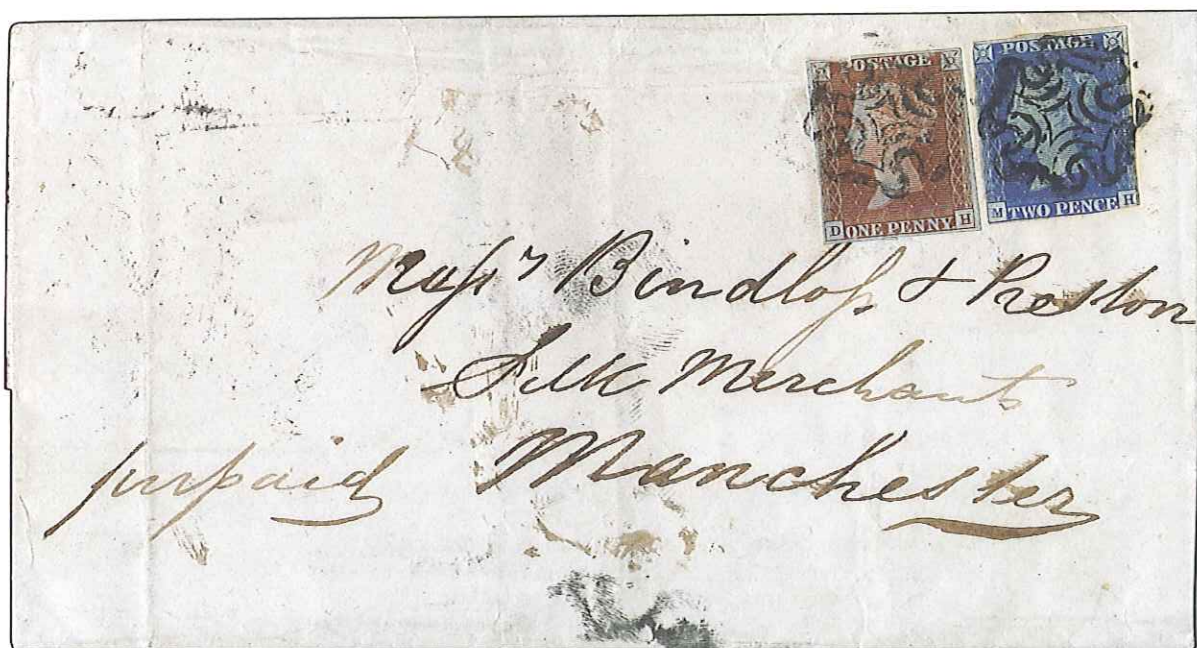 POSTAGE
D ONE PENNY. H
POSTAGE
M TWO PENCE H
Meſsrs Bindloſs & Preston
Silk Merchants
prepaid Manchester